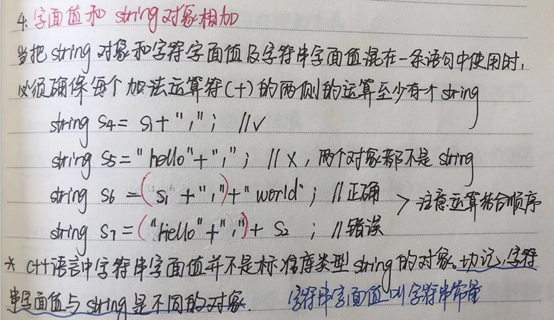 4. 字面值和 string 对象相加
当把 string 对象和字符字面值及字符串字面值混在一条语句中使用时,
必须确保每个加法运算符(+)的两侧的运算至少有个 string
string S4 = S1 + ","; //√
string S5 = "hello" + ","; //×, 两个对象都不是 string
string S6 = (S1 + ",") + "world"; //正确
> 注意运算结合顺序
string S7 = ("hello" + ",") + S2; //错误
* C++语言中字符串字面值并不是标准库类型 string 的对象。切记,字符
串字面值与 string 是不同的对象. 字符串字面值
字符串常量